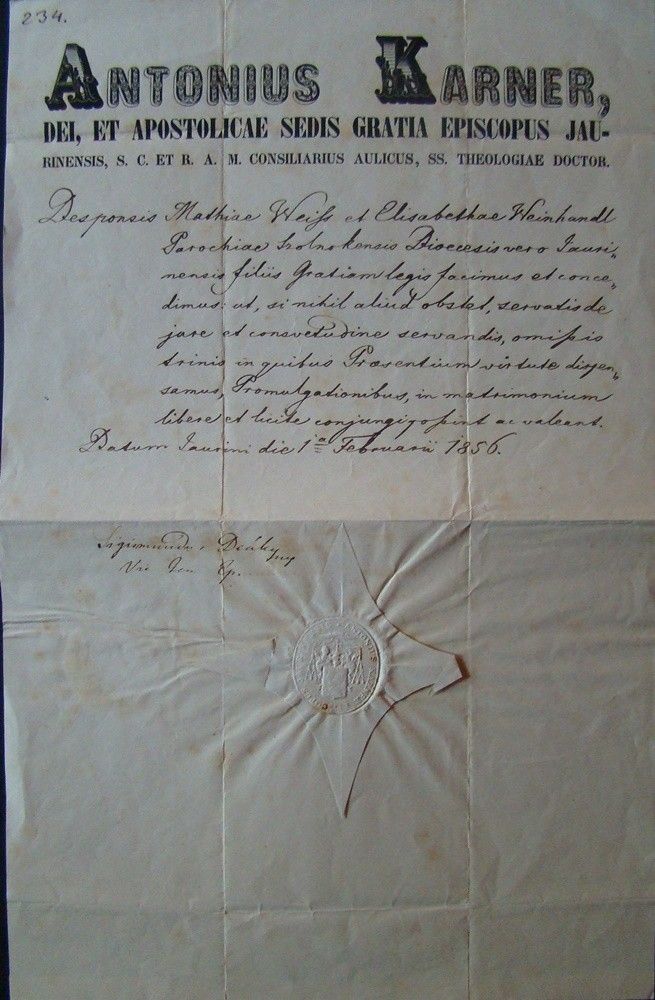 234.
ANTONIUS KARNER,
DEI, ET APOSTOLICAE SEDIS GRATIA EPISCOPUS JAU-
RINENSIS, S. C. ET R. A. M. CONSILIARIUS AULICUS, SS. THEOLOGIAE DOCTOR.
Desponsis Mathiae Weiss et Elisabethae Weinhandl
Parochiae Szolnokensis Dioecesis vero Jauri„
nensis filiis Gratiam legis facimus et conce„
dimus: ut, si nihil aliud obstet, servatis de
jure et consvetudine servandis, omissis
trinis in quibus Praesentium virtute dispen„
samus, Promulgationibus, in matrimonium
libere et licite conjungi possint ac valeant.
Datum Jaurini die 1ª Februarii 1856.
Sigismundus Deáky